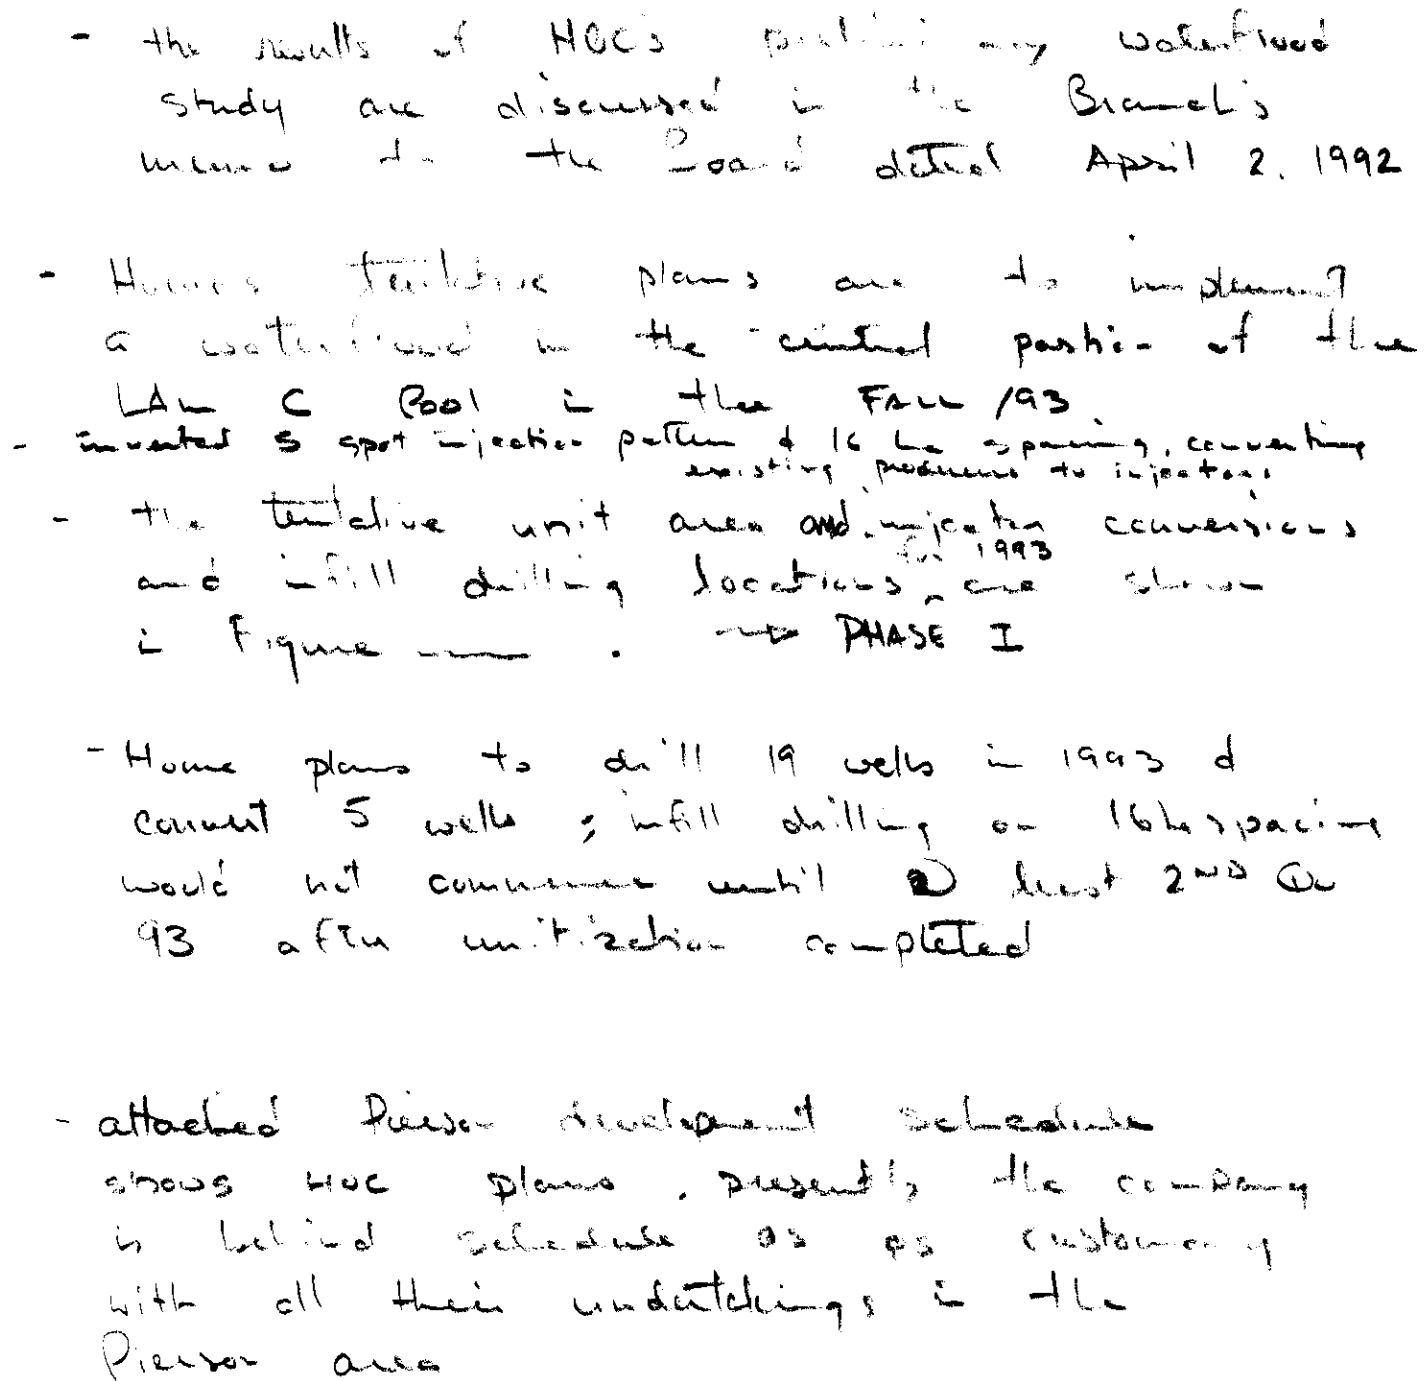 - the results of HOC's preliminary waterflood
study are discussed in the Branch's
memo to the Board dated April 2, 1992
- Home's tentative plans are to implement
a waterflood in the central portion of the
LAm C Pool in the FALL /93.
- inverted 5 spot injection pattern & 16 ha spacing, converting
existing producers to injectors
- the tentative unit area and injector conversions
for 1993
and infill drilling locations ^ are shown
in Figure ___ . → PHASE I
- Home plans to drill 19 wells in 1993 &
convert 5 wells ; infill drilling on 16 ha spacing
would not commence until @ least 2ND Qu
93 after unitization completed
- attached Pierson development schedule
shows HOC plans, presently the company
is behind schedule as is customary
with all their undertakings in the
Pierson area